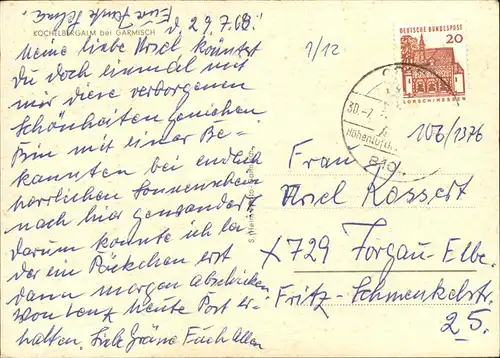 Eure Tante Selma.
d. 29.7.68.
KOCHELBERGALM bei GARMISCH
Meine liebe Ursel könntest
Du doch einmal mit
mir diese verborgenen
Schönheiten genießen
Bin mit einer Be-
kannten bei endlich
herrlichen Sonnenschein
nach hier gewandert
darum konnte ich la
der ein Päckchen erst
dann morgen abschicken
von heute Post er-
halten. Liebe Grüße Euch Allen
1/12
DEUTSCHE BUNDESPOST
20
LORSCH/HESSEN
30.-7.
Höhenluftk
810
106/1376
Frau
Ursel Rossert
X 729 Torgau-Elbe.
Fritz-Schmenkelstr.
25.